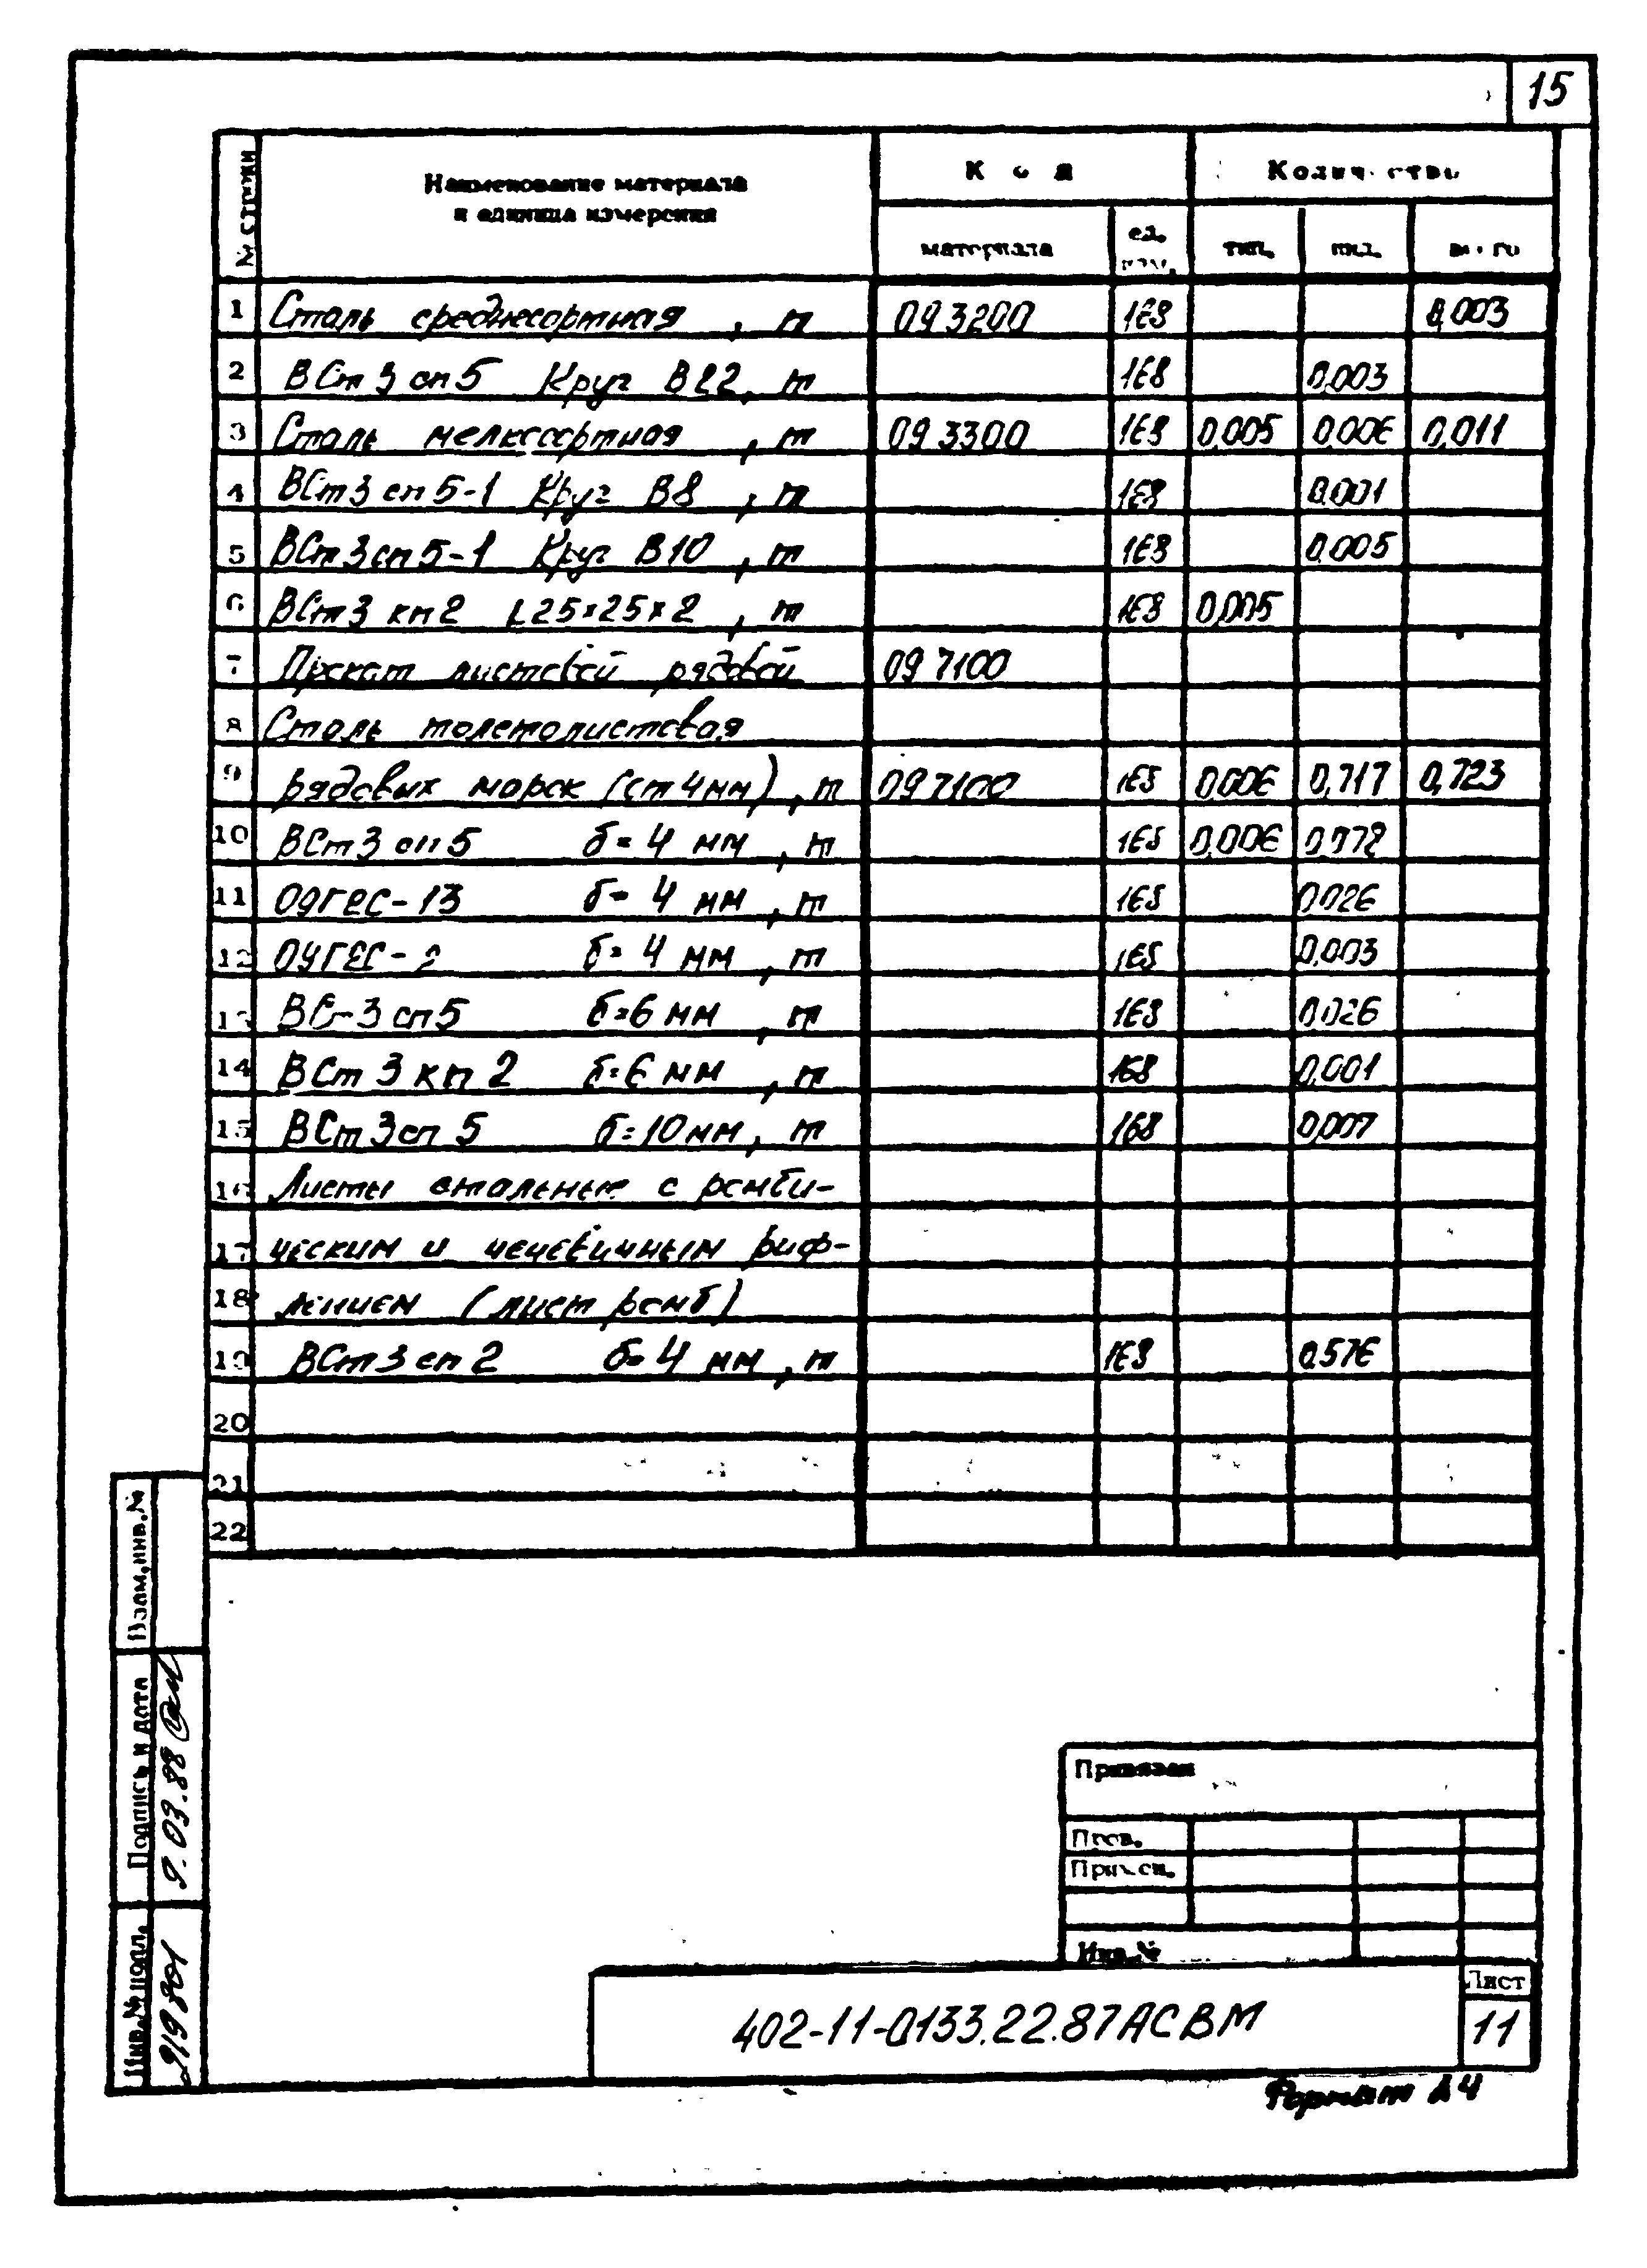 15
№ строки
Наименование материала
и единица измерения
Код
Количество
материала
ед. изм.
тип.
инд.
всего
1 Сталь среднесортная , т 093200 168 0,003
2 ВСт3сп5 Круг В22, т 168 0,003
3 Сталь мелкосортная , т 093300 168 0,005 0,006 0,011
4 ВСт3сп5-1 Круг В8 , т 168 0,001
5 ВСт3сп5-1 Круг В10 , т 168 0,005
6 ВСт3кп2 L25×25×2 , т 168 0,005
7 Прокат листовой рядовой 097100
8 Сталь толстолистовая
9 рядовых марок (ст 4мм) , т 097100 168 0,006 0,717 0,723
10 ВСт3сп5 б=4 мм , т 168 0,006
11 09Г2С-13 б=4 мм , т 168 0,026
12 б=4 мм , т 168 0,003
13 ВСт3сп5 б=6 мм , т 168 0,026
14 ВСт3кп2 б=6 мм , т 168 0,001
15 ВСт3сп5 б=10мм, т 168 0,007
16 Листы стальные с ромби-
17 ческим и чечевичным риф-
18 лением (лист ромб)
19 ВСт3сп2 б=4 мм , т 168 0,576
20
21
22
Взам.инв.№
Подпись и дата
9.03.88
Инв.№подл.
Привязан
Пров.
Инв.№
402-11-0133.22.87АСВМ
Лист
11
Формат А4